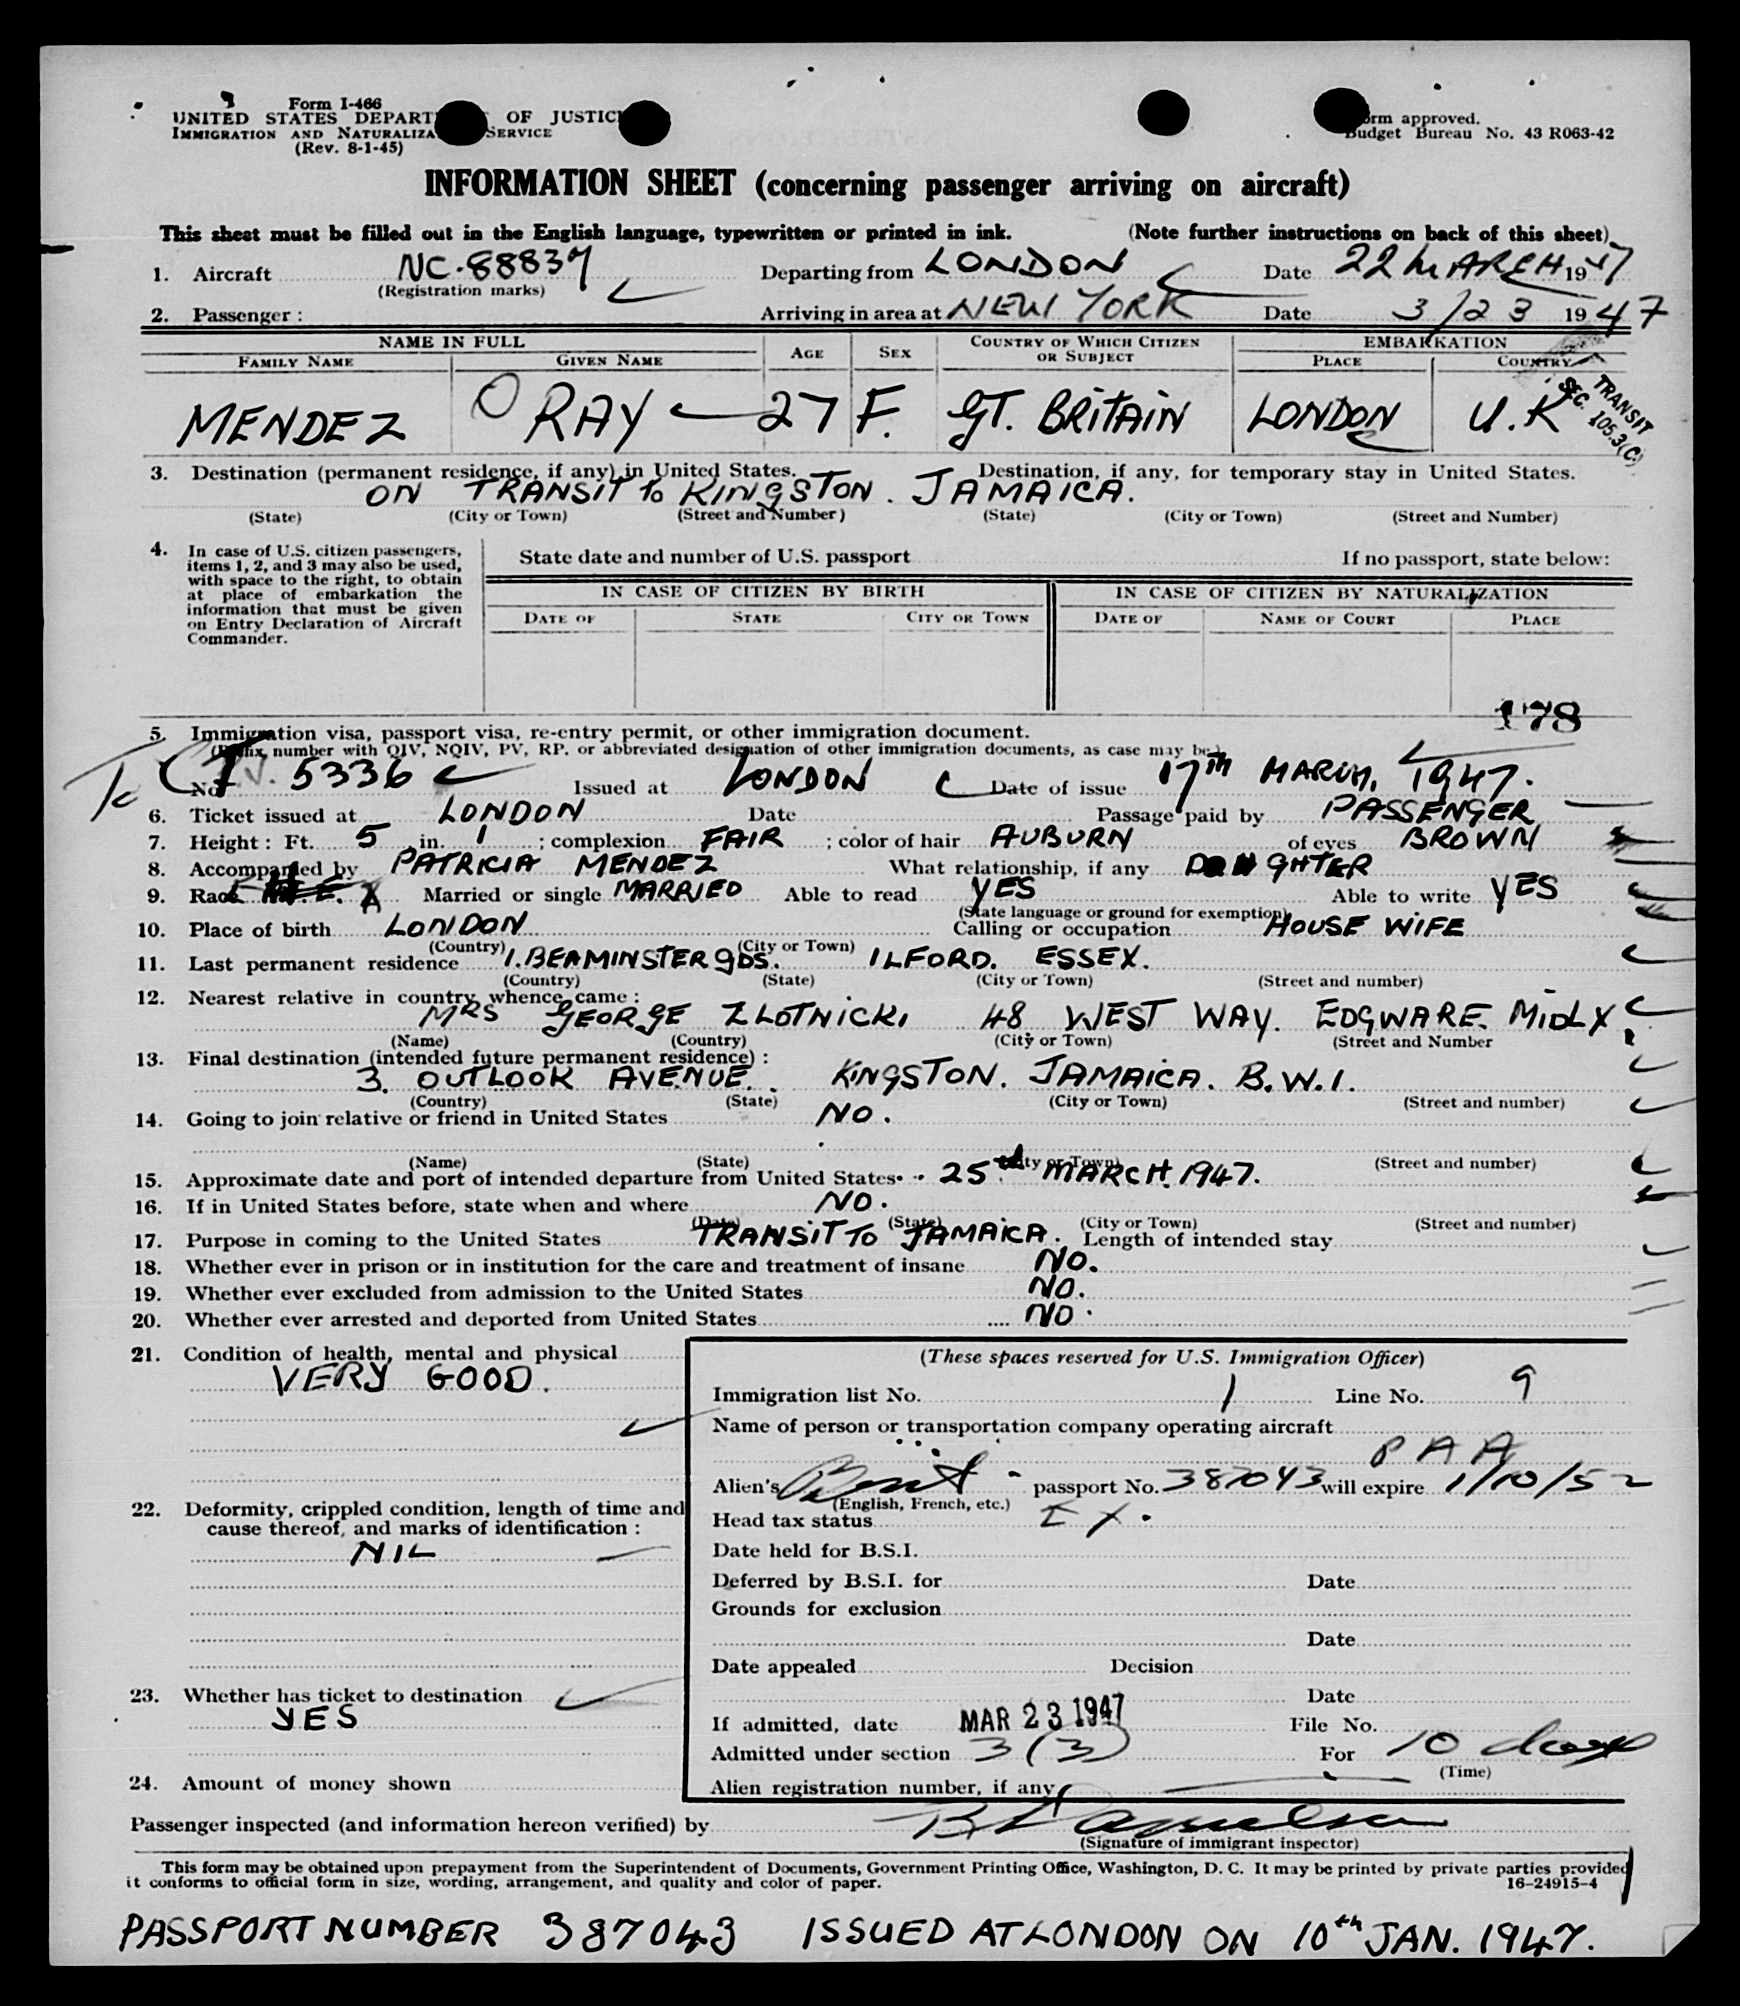 Form I-466
UNITED STATES DEPART OF JUSTIC
IMMIGRATION AND NATURALIZA SERVICE
(Rev. 8-1-45)
orm approved.
Budget Bureau No. 43 R063-42
INFORMATION SHEET (concerning passenger arriving on aircraft)
This sheet must be filled out in the English language, typewritten or printed in ink. (Note further instructions on back of this sheet)
1. Aircraft NC-88837 Departing from LONDON Date 22 MARCH 1947
(Registration marks)
2. Passenger: Arriving in area at NEW YORK Date 3/23 1947
NAME IN FULL AGE SEX COUNTRY OF WHICH CITIZEN OR SUBJECT EMBARKATION
FAMILY NAME GIVEN NAME PLACE COUNTRY
MENDEZ RAY 27 F. GT. BRITAIN LONDON U.K
TRANSIT
SEC. 105.3(C)
3. Destination (permanent residence, if any) in United States. Destination, if any, for temporary stay in United States.
ON TRANSIT TO KINGSTON. JAMAICA.
(State) (City or Town) (Street and Number) (State) (City or Town) (Street and Number)
4. In case of U.S. citizen passengers,
items 1, 2, and 3 may also be used,
with space to the right, to obtain
at place of embarkation the
information that must be given
on Entry Declaration of Aircraft
Commander.
State date and number of U.S. passport If no passport, state below:
IN CASE OF CITIZEN BY BIRTH IN CASE OF CITIZEN BY NATURALIZATION
DATE OF STATE CITY OR TOWN DATE OF NAME OF COURT PLACE
178
5. Immigration visa, passport visa, re-entry permit, or other immigration document.
(Prefix number with QIV, NQIV, PV, RP, or abbreviated designation of other immigration documents, as case may be.)
No. 5336 Issued at LONDON Date of issue 17th MARCH, 1947.
6. Ticket issued at LONDON Date Passage paid by PASSENGER
7. Height: Ft. 5 in. 1 ; complexion FAIR ; color of hair AUBURN of eyes BROWN
8. Accompanied by PATRICIA MENDEZ What relationship, if any DAUGHTER
9. Race Married or single MARRIED Able to read YES Able to write YES
(State language or ground for exemption)
10. Place of birth LONDON Calling or occupation HOUSE WIFE
(Country) (City or Town)
11. Last permanent residence 1. BEAMINSTER GDS. ILFORD. ESSEX.
(Country) (State) (City or Town) (Street and number)
12. Nearest relative in country whence came:
MRS GEORGE ZLOTNICKI 48 WEST WAY. EDGWARE. MIDLX
(Name) (Country) (City or Town) (Street and Number
13. Final destination (intended future permanent residence):
3. OUTLOOK AVENUE. KINGSTON. JAMAICA. B.W.I.
(Country) (State) (City or Town) (Street and number)
14. Going to join relative or friend in United States NO.
(Name) (State) (City or Town) (Street and number)
15. Approximate date and port of intended departure from United States 25th MARCH. 1947.
16. If in United States before, state when and where NO.
(Date) (State) (City or Town) (Street and number)
17. Purpose in coming to the United States TRANSIT TO JAMAICA. Length of intended stay
18. Whether ever in prison or in institution for the care and treatment of insane NO.
19. Whether ever excluded from admission to the United States NO.
20. Whether ever arrested and deported from United States NO.
21. Condition of health, mental and physical
VERY GOOD.
22. Deformity, crippled condition, length of time and
cause thereof, and marks of identification:
NIL
23. Whether has ticket to destination
YES
24. Amount of money shown
(These spaces reserved for U.S. Immigration Officer)
Immigration list No. 1 Line No. 9
Name of person or transportation company operating aircraft
PAA
Alien's Brit passport No. 387043 will expire 1/10/52
(English, French, etc.)
Head tax status EX.
Date held for B.S.I.
Deferred by B.S.I. for Date
Grounds for exclusion
Date
Date appealed Decision
Date
If admitted, date MAR 23 1947 File No.
Admitted under section 3(3) For 10 days
(Time)
Alien registration number, if any
Passenger inspected (and information hereon verified) by
(Signature of immigrant inspector)
This form may be obtained upon prepayment from the Superintendent of Documents, Government Printing Office, Washington, D. C. It may be printed by private parties provided
it conforms to official form in size, wording, arrangement, and quality and color of paper. 16-24915-4
PASSPORT NUMBER 387043 ISSUED AT LONDON ON 10th JAN. 1947.